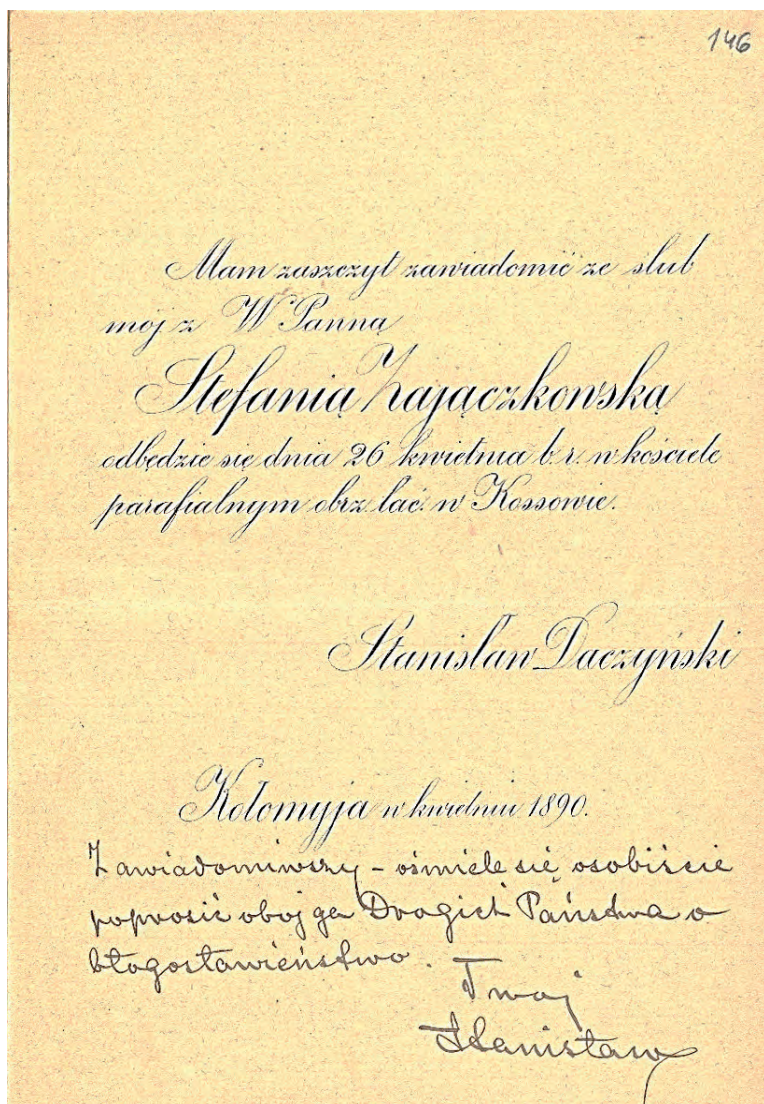 146
Mam zaszczyt zawiadomić ze slub
mój z W Panna
Stefanią Zajączkowską
odbędzie się dnia 26 kwietnia b. r. w kościele
parafialnym obrz. łać. w Kossowie.
Stanisław Daczyński
Kołomyja w kwietniu 1890.
Zawiadomiwszy – ośmiele się osobiście
poprosić obojga Drogich Państwa o
błogosławieństwo.
Twoj
Stanisław